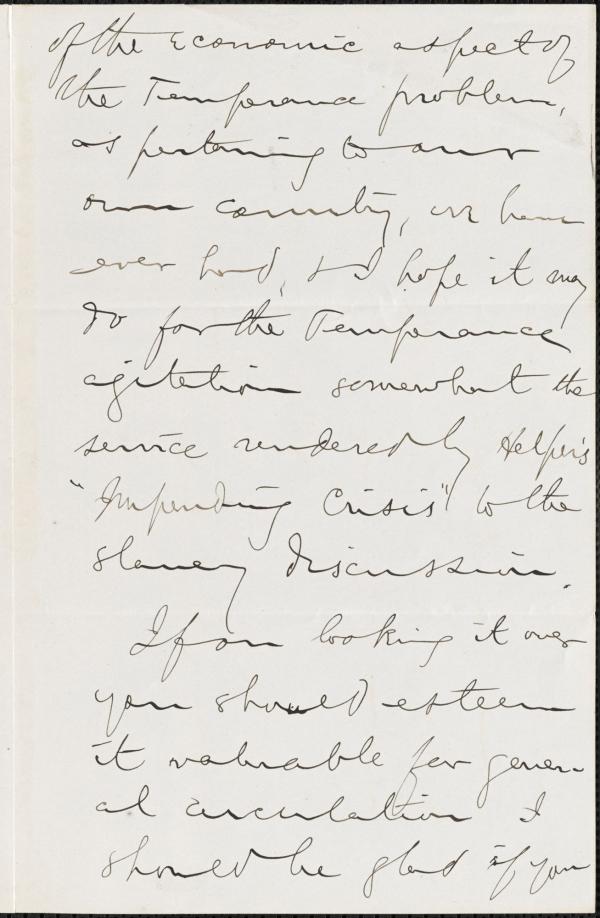 of the Economic aspect of
the Temperance problem,
as pertaining to our
own country, we have
ever had, & I hope it may
do for the Temperance
agitation somewhat the
service rendered by Helper's
"Impending Crisis" to the
slavery discussion.
If on looking it over
you should esteem
it valuable for gener-
al circulation I
should be glad if you